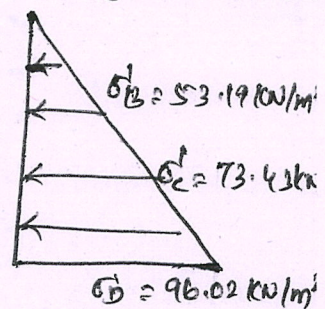 σ'B = 53.19 KN/m²
σ'c = 73.43 kN
σ'D = 96.02 KN/m²